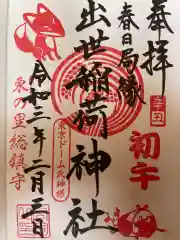 奉拝
春日局縁
出世稲荷神社
令和三年二月三日
初午
辛丑
東京ドーム氏神様
東の里総鎮守